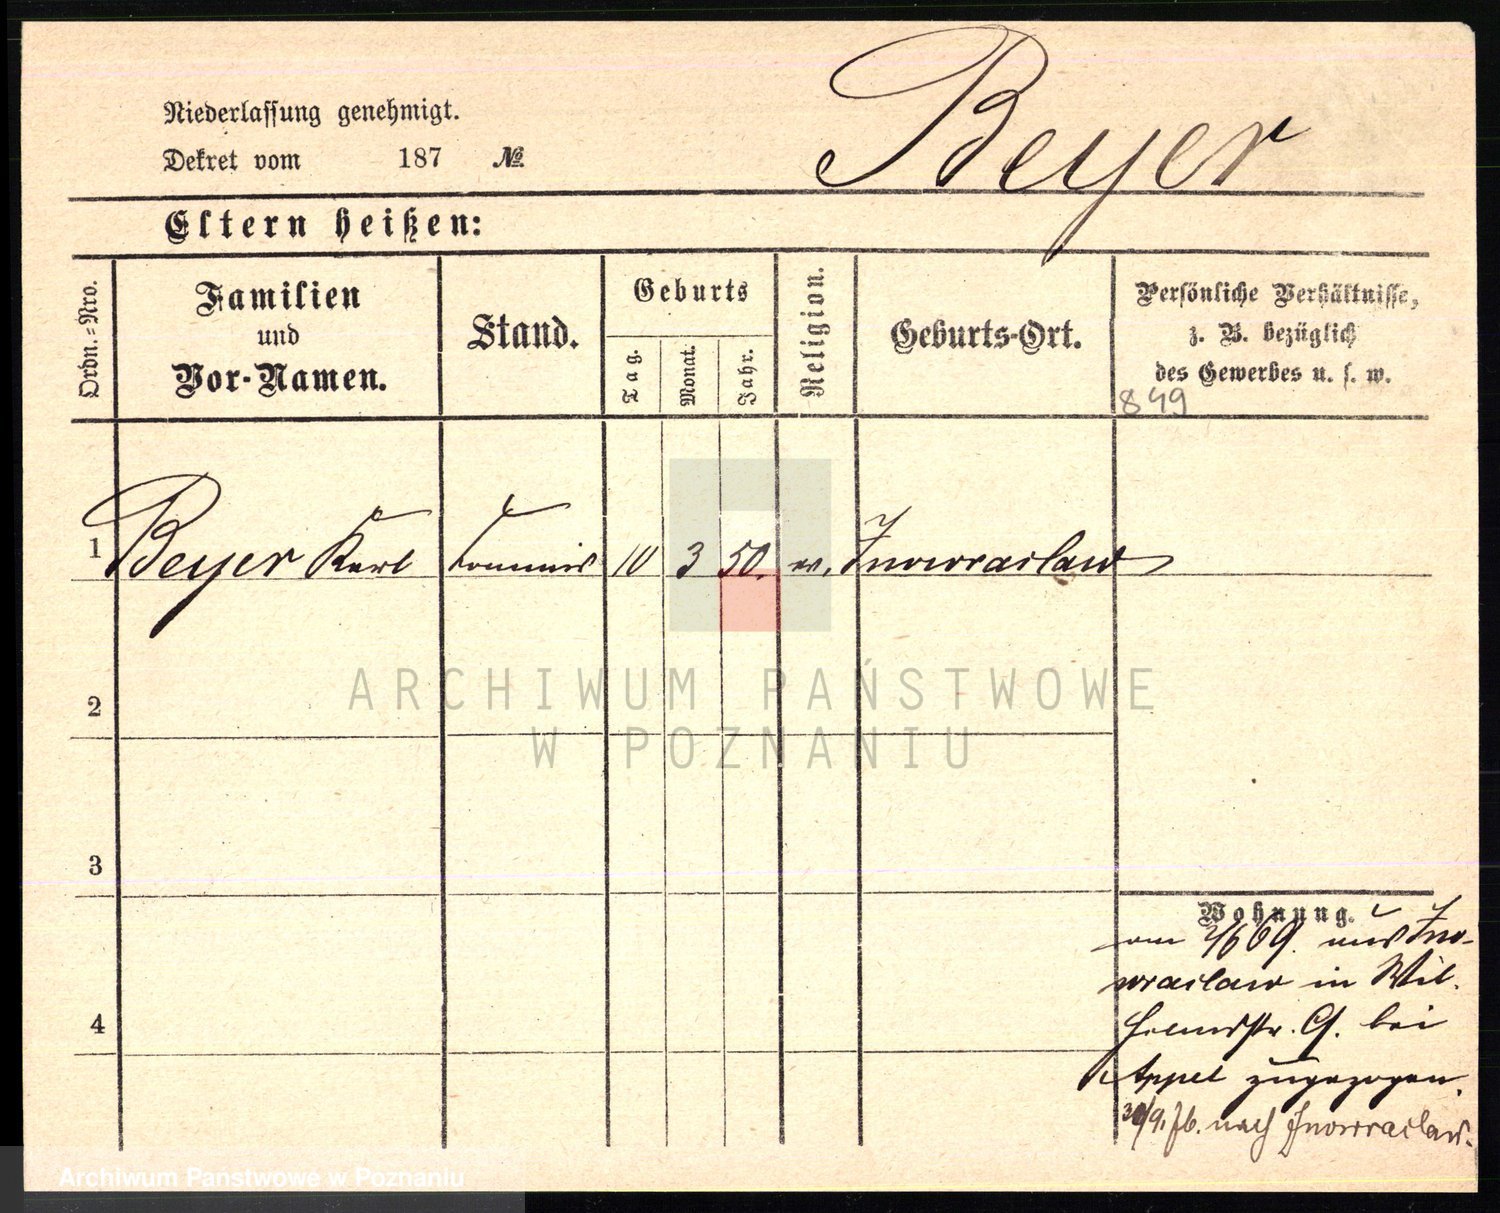 Beyer
Niederlassung genehmigt.
Dekret vom 187 №
Eltern heißen:
Ordn.-Nro.
Familien
und
Vor-Namen.
Stand.
Geburts
Tag.
Monat.
Jahr.
Religion.
Geburts-Ort.
Persönliche Verhältnisse,
z. B. bezüglich
des Gewerbes u. s. w.
849
1 Beyer Karl Commis 10 3 50. ev. Inowraclaw
2
3
4
Wohnung.
am 69. aus Ino-
wraclaw in Wil-
helmstr. 9. bei
Appel zugezogen.
30/9. nach Inowraclaw.
ARCHIWUM PAŃSTWOWE
W POZNANIU
Archiwum Państwowe w Poznaniu